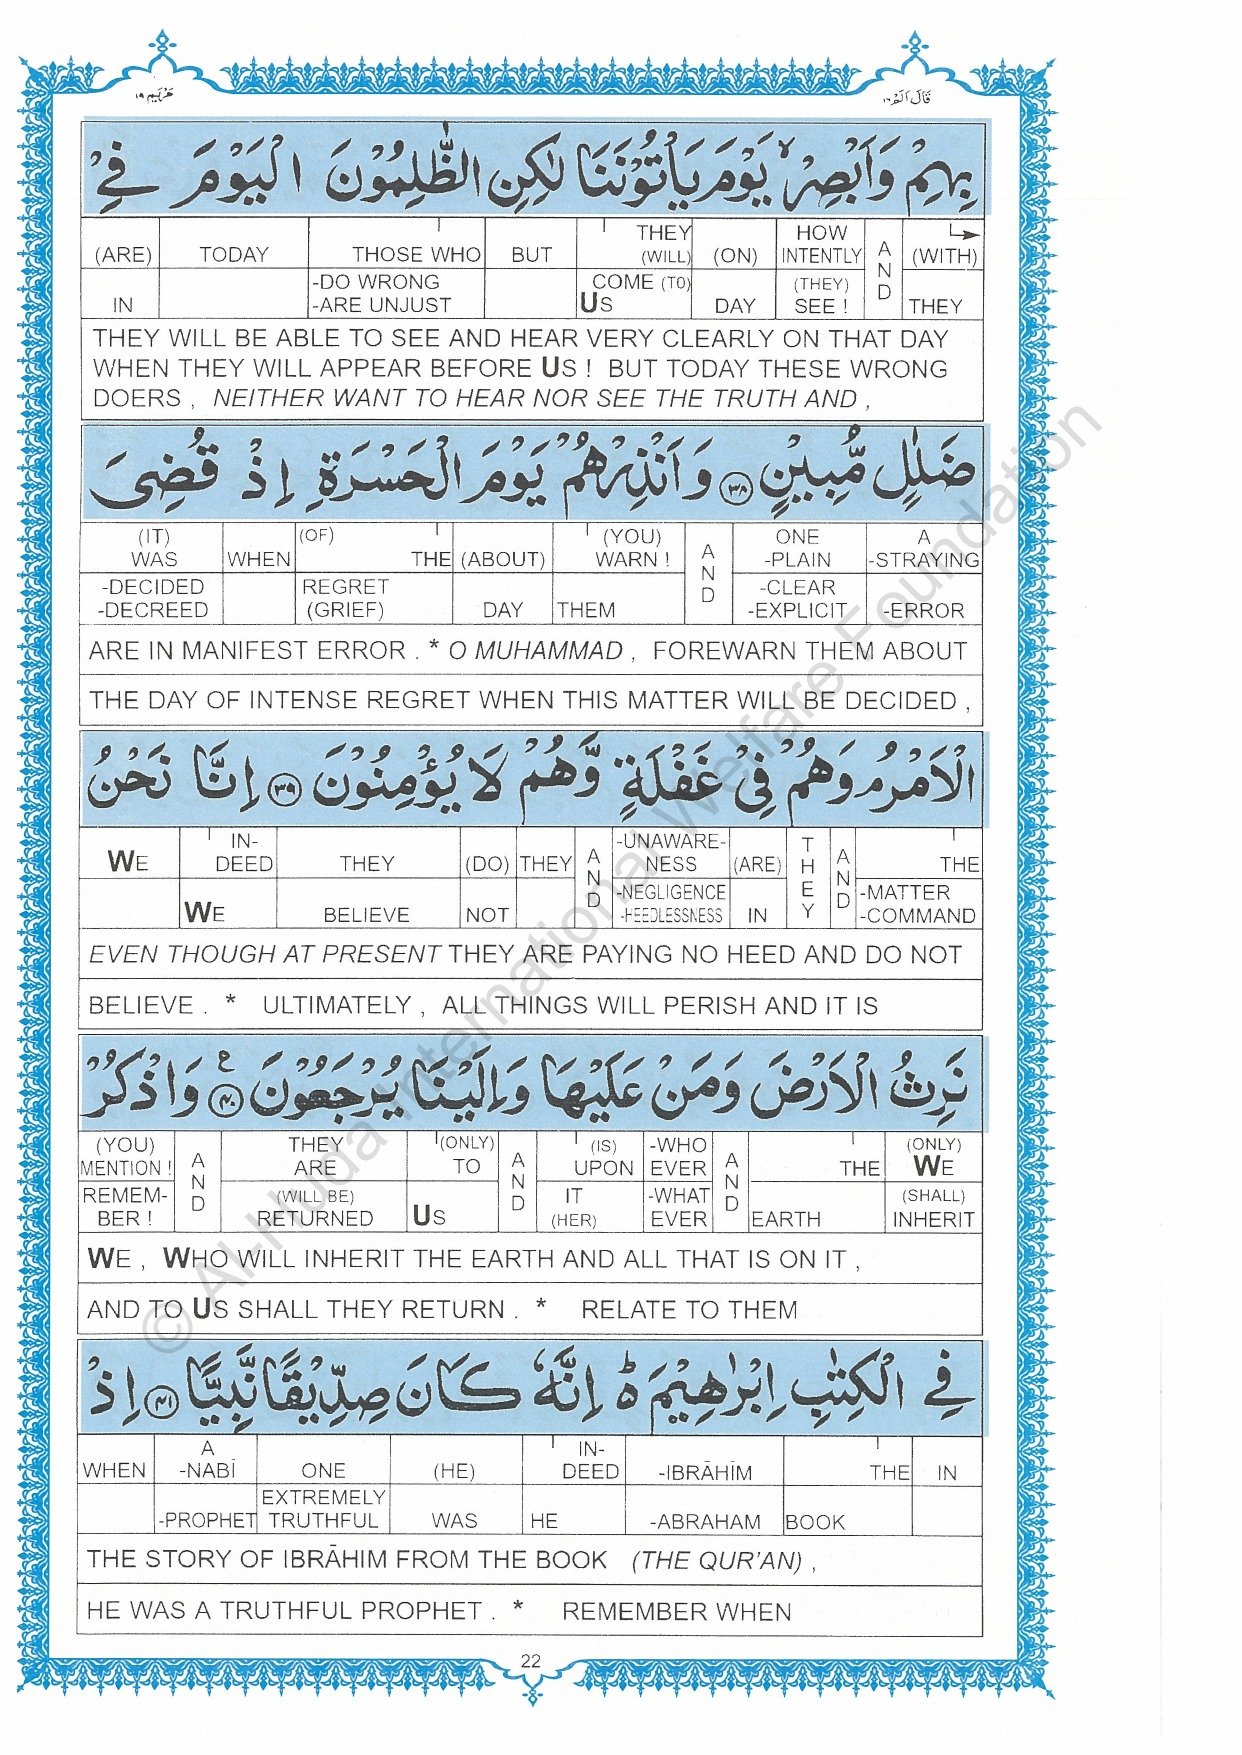 مَرْيَم ١٩
قَالَ اَلَمْ ١٦
بِهِمْ وَاَبْصِرْ ۙ يَوْمَ يَاْتُوْنَنَا لٰكِنِ الظّٰلِمُوْنَ الْيَوْمَ فِيْ
(ARE) TODAY THOSE WHO BUT THEY (WILL) (ON) HOW INTENTLY AND (WITH)
IN -DO WRONG -ARE UNJUST COME (TO) US DAY (THEY) SEE ! THEY
THEY WILL BE ABLE TO SEE AND HEAR VERY CLEARLY ON THAT DAY
WHEN THEY WILL APPEAR BEFORE US ! BUT TODAY THESE WRONG
DOERS , NEITHER WANT TO HEAR NOR SEE THE TRUTH AND ,
ضَلٰلٍ مُّبِيْنٍ ٣٨ وَاَنْذِرْهُمْ يَوْمَ الْحَسْرَةِ اِذْ قُضِىَ
(IT) WAS WHEN (OF) THE (ABOUT) (YOU) WARN ! AND ONE -PLAIN A -STRAYING
-DECIDED -DECREED REGRET (GRIEF) DAY THEM -CLEAR -EXPLICIT -ERROR
ARE IN MANIFEST ERROR . * O MUHAMMAD , FOREWARN THEM ABOUT
THE DAY OF INTENSE REGRET WHEN THIS MATTER WILL BE DECIDED ,
الْاَمْرُ ۘ وَهُمْ فِيْ غَفْلَةٍ وَّهُمْ لَا يُؤْمِنُوْنَ ٣٩ اِنَّا نَحْنُ
WE IN-DEED THEY (DO) THEY AND -UNAWARE-NESS (ARE) THEY AND THE
WE BELIEVE NOT -NEGLIGENCE -HEEDLESSNESS IN -MATTER -COMMAND
EVEN THOUGH AT PRESENT THEY ARE PAYING NO HEED AND DO NOT
BELIEVE . * ULTIMATELY , ALL THINGS WILL PERISH AND IT IS
نَرِثُ الْاَرْضَ وَمَنْ عَلَيْهَا وَاِلَيْنَا يُرْجَعُوْنَ ٤٠ ع وَاذْكُرْ
(YOU) MENTION ! AND THEY ARE (ONLY) TO AND (IS) UPON -WHO EVER AND THE (ONLY) WE
REMEM-BER ! (WILL BE) RETURNED US IT (HER) -WHAT EVER EARTH (SHALL) INHERIT
WE , WHO WILL INHERIT THE EARTH AND ALL THAT IS ON IT ,
AND TO US SHALL THEY RETURN . * RELATE TO THEM
فِي الْكِتٰبِ اِبْرٰهِيْمَ ۗ اِنَّهٗ كَانَ صِدِّيْقًا نَّبِيًّا ٤١ اِذْ
WHEN A -NABĪ ONE (HE) IN-DEED -IBRĀHĪM THE IN
-PROPHET EXTREMELY TRUTHFUL WAS HE -ABRAHAM BOOK
THE STORY OF IBRĀHIM FROM THE BOOK (THE QUR'AN) ,
HE WAS A TRUTHFUL PROPHET . * REMEMBER WHEN
22
© Al-Huda International Welfare Foundation